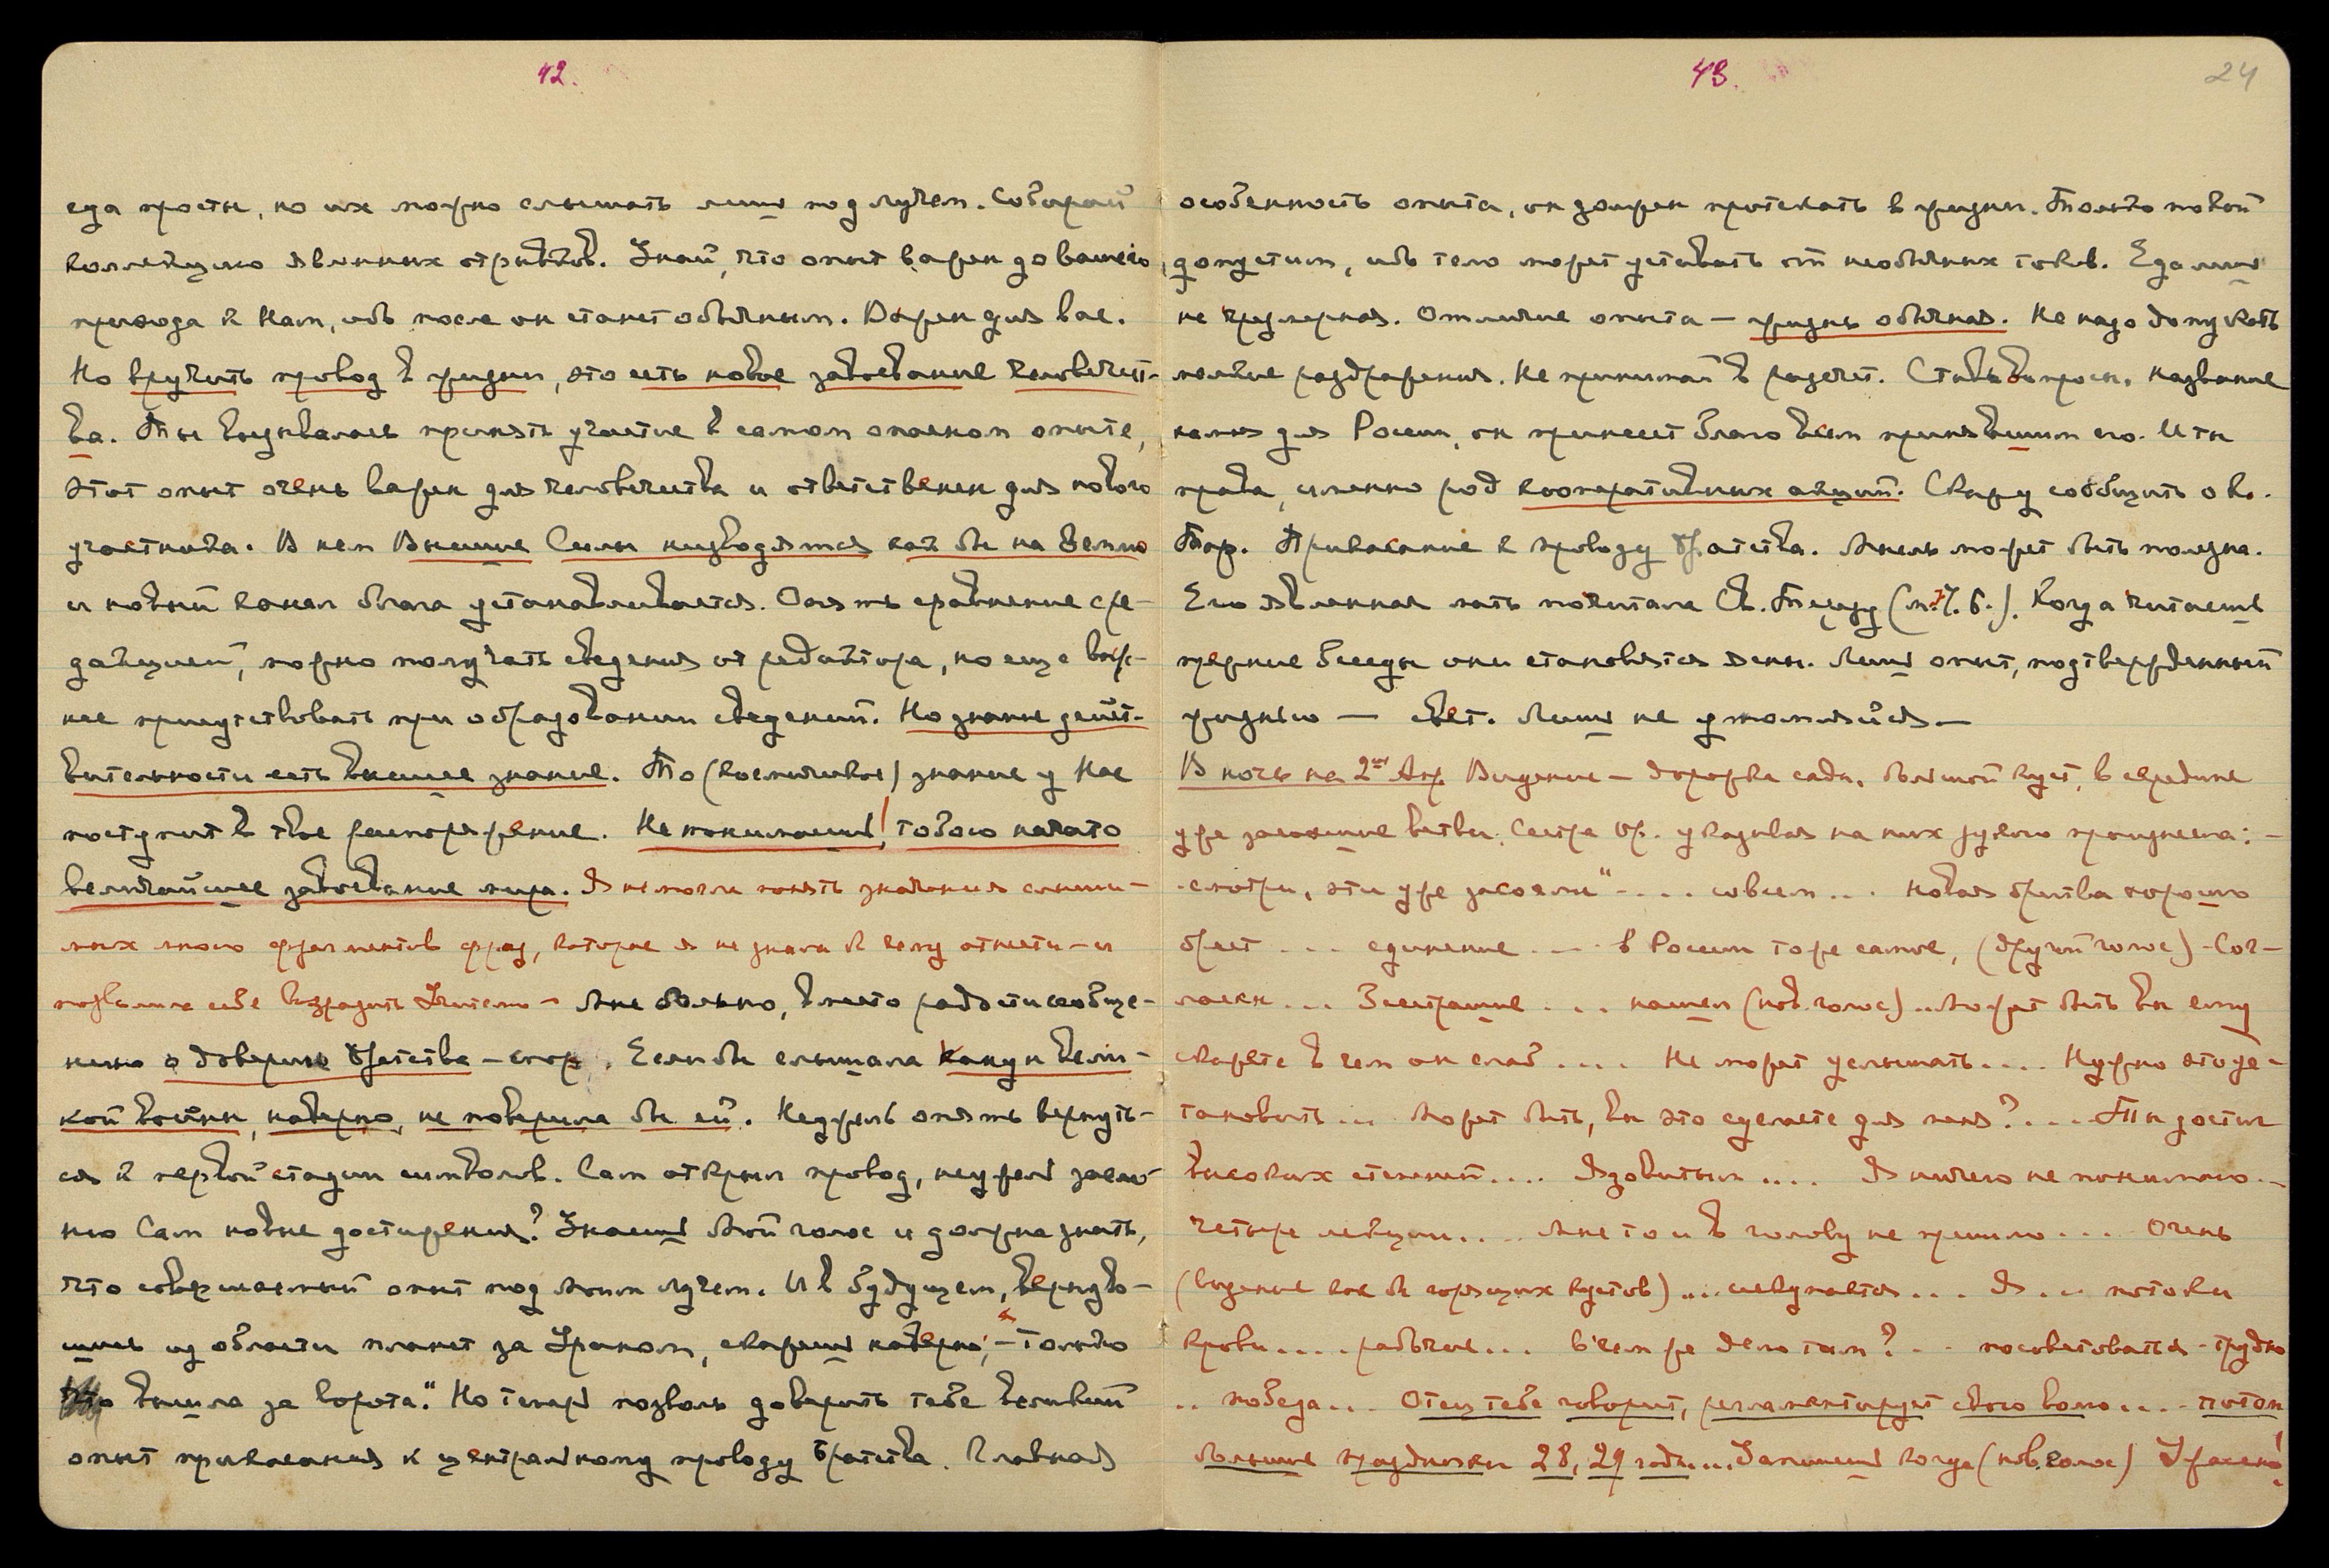 42.
еда просты, но их можно слышать лишь под лучем. Собирай
коллекцию явленных отрывков. Знай, что опыт важен до вашего
прихода к Нам, ибо после он станет обычным. Важен для вас.
Но вручить провод в жизни, это есть новое завоевание человечест-
ва. Ты вызвалась принять участие в самом опасном опыте,
этот опыт очень важен для человечества и ответственен для нового
участника. В нем Высшие Силы низводятся как бы на Землю
и новый канал блага устанавливается. Опять сравнение с ре-
дакцией, можно получать сведения от редактора, но еще важ-
нее присутствовать при образовании сведений. Но знание дейст-
вительности есть высшее знание. То (космическое) знание у Нас
поступит в твое распоряжение. Не понимаешь! тобою начато
величайшее завоевание мира. Я не могла понять значения слыши-
мых много фрагментов фраз, которые я не знала к чему отнести - и
позволила себе выразить Учителю - Мне больно, вместо радости сообще-
нию о доверии Братства - спор. Если бы слышала канун вели-
кой войны, наверно, не поверила бы ей. Неужель опять вернуть-
ся к первой стадии символов. Сам открыл провод, неужель засло-
ню Сам новые достижения? Знаешь Мой голос и должна знать,
что совершаемый опыт под Моим лучем. И в будущем, вернув-
шись из области планет за Ураном, скажешь наверно, - "только
что вышла за ворота." Но теперь позволь доверить тебе великий
опыт прикасания к центральному проводу Братства. Главная
43.
24
особенность опыта, он должен протекать в жизни. Только покой
допустим, ибо тело может уставать от необычных токов. Еда лишь
не чрезмерная. Отличие опыта — жизнь обычная. Не надо допускать
мелкие раздражения. Не принимай в расчет. Ставь вопросы. Название
камня для России, он принесет благо всем принявшим его. И ты
права, именно род кооперативных акций. Скажу сообщить о ко.
Тар. Прикасание к проводу Братства. Мысль может быть полезна.
Его явленная мать почитала Св. Терезу (м. Ч. Б.). Когда читаешь
прежние беседы они становятся ясны. Лишь опыт, подтвержденный
жизнью — свет. Лишь не утомляйся —
В ночь на 2ое Апр Видение - дорожка сада, большой куст, в середине
уже засохшие ветви. Сестра Ор. указывая на них рукою произнесла: -
-смотри, эти уже засохли" - . . . совсем . . . новая бритва хорошо
бреет . . . единение . . . в России то же самое, (другой голос) - Сог-
ласен . . . Всестрашие . . . нашел (нов. голос) .. Может быть вы ему
скажете в чем он слаб . . . . Не может услышать . . . . Нужно это ус-
тановить . . . Может быть, вы это сделаете для меня? . . . . Ты достиг
высоких степеней . . . . Ядовитым . . . . Я ничего не понимаю . .
четыре лекции . . . . Мне то и в голову не пришло . . . . Очень
(видение как бы горящих кустов) . . . . . . Я . . . потоки
крови . . . . рабочие . . . в чем же дело там? . . . посоветоваться - трудно
. . победа . . . Отец тебе говорит, регламентирует свою волю . . . . потом
большие праздники 28, 29 года . . . Запишешь когда (нов. голос) Ужасно!